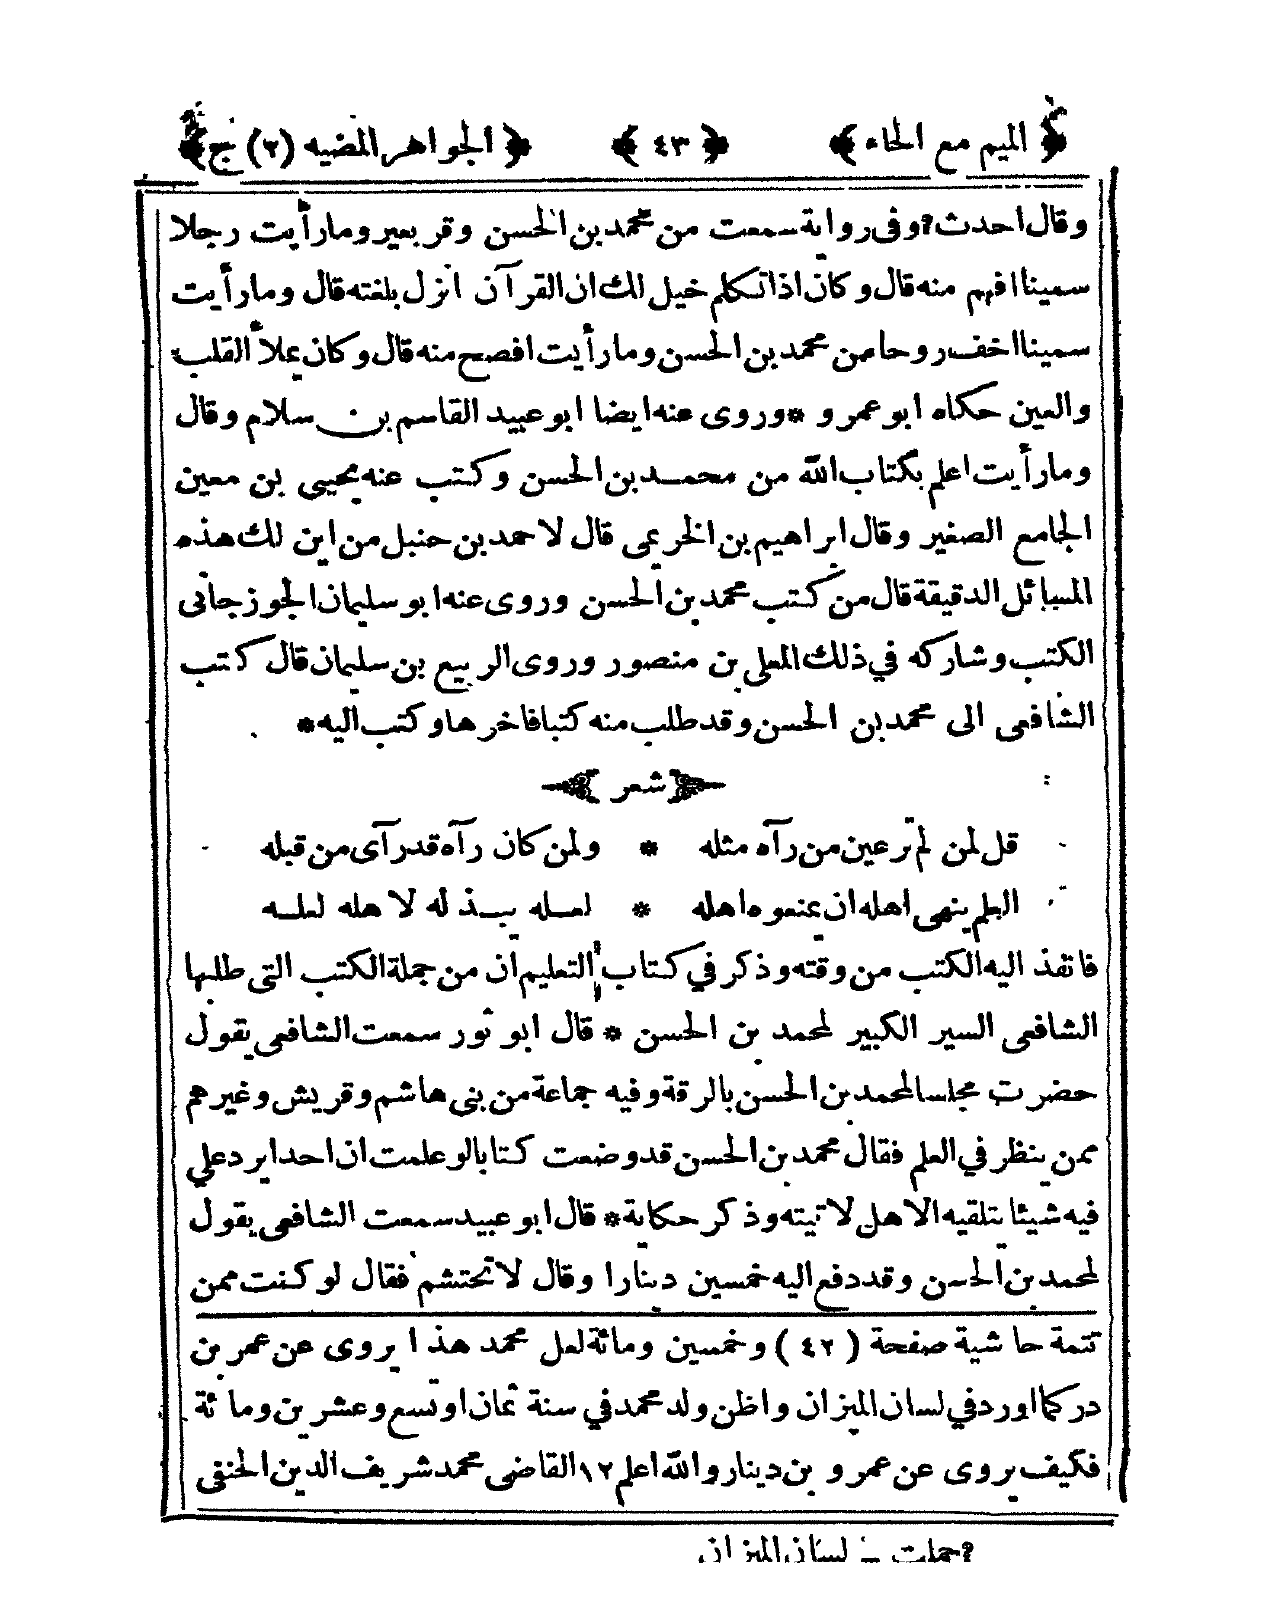 ﴿الميم مع الحاء﴾ ﴿٤٣﴾ ﴿الجواهر المضيه (٢) ج﴾
وقال احدث؟وفى رواية سمعت من محمد بن الحسن وقر بعير وما رأيت رجلا
سمينا افهم منه قال وكان اذا تكلم خيل لك ان القرآن انزل بلغته قال وما رأيت
سمينا اخف روحا من محمد بن الحسن وما رأيت افصح منه قال وكان يملأ القلب
والعين حكاه ابو عمر و *وروى عنه ايضا ابو عبيد القاسم بن سلام وقال
وما رأيت اعلم بكتاب الله من محمد بن الحسن وكتب عنه يحيى بن معين
الجامع الصغير وقال ابراهيم بن الخريمى قال لاحمد بن حنبل من اين لك هذه
المسائل الدقيقة قال من كتب محمد بن الحسن وروى عنه ابو سليمان الجوزجانى
الكتب وشاركه في ذلك المعلى بن منصور وروى الربيع بن سليمان قال كتب
الشافعى الى محمد بن الحسن وقد طلب منه كتبا فاخرها وكتب اليه*
شعر
قل لمن لم تر عين من رآه مثله * ولمن كان رآه قد رآى من قبله
العلم ينهى اهله ان يمنعوه اهله * لعله يبذله لاهله لعله
فانفذ اليه الكتب من وقته وذكر في كتاب التعليم ان من جملة الكتب التى طلبها
الشافعى السير الكبير لمحمد بن الحسن * قال ابو ثور سمعت الشافعى يقول
حضرت مجلسا لمحمد بن الحسن بالرقة وفيه جماعة من بنى هاشم وقريش وغيرهم
ممن ينظر في العلم فقال محمد بن الحسن قد وضعت كتابا لو علمت ان احدا يرد علي
فيه شيئا يتلقيه الاهل لاتيته وذكر حكاية* قال ابو عبيد سمعت الشافعى يقول
لمحمد بن الحسن وقد دفع اليه خمسين دينارا وقال لا تحتشم فقال لو كنت ممن
تتمة حاشية صفحة (٤٢) وخمسين ومائة لعل محمد هذا يروى عن عمر بن
در كما اورد في لسان الميزان واظن ولد محمد في سنة ثمان او تسع وعشرين ومائة
فكيف يروى عن عمرو بن دينار والله اعلم ١٢ القاضى محمد شريف الدين الحنفى
؟حملت _ لسان الميزان